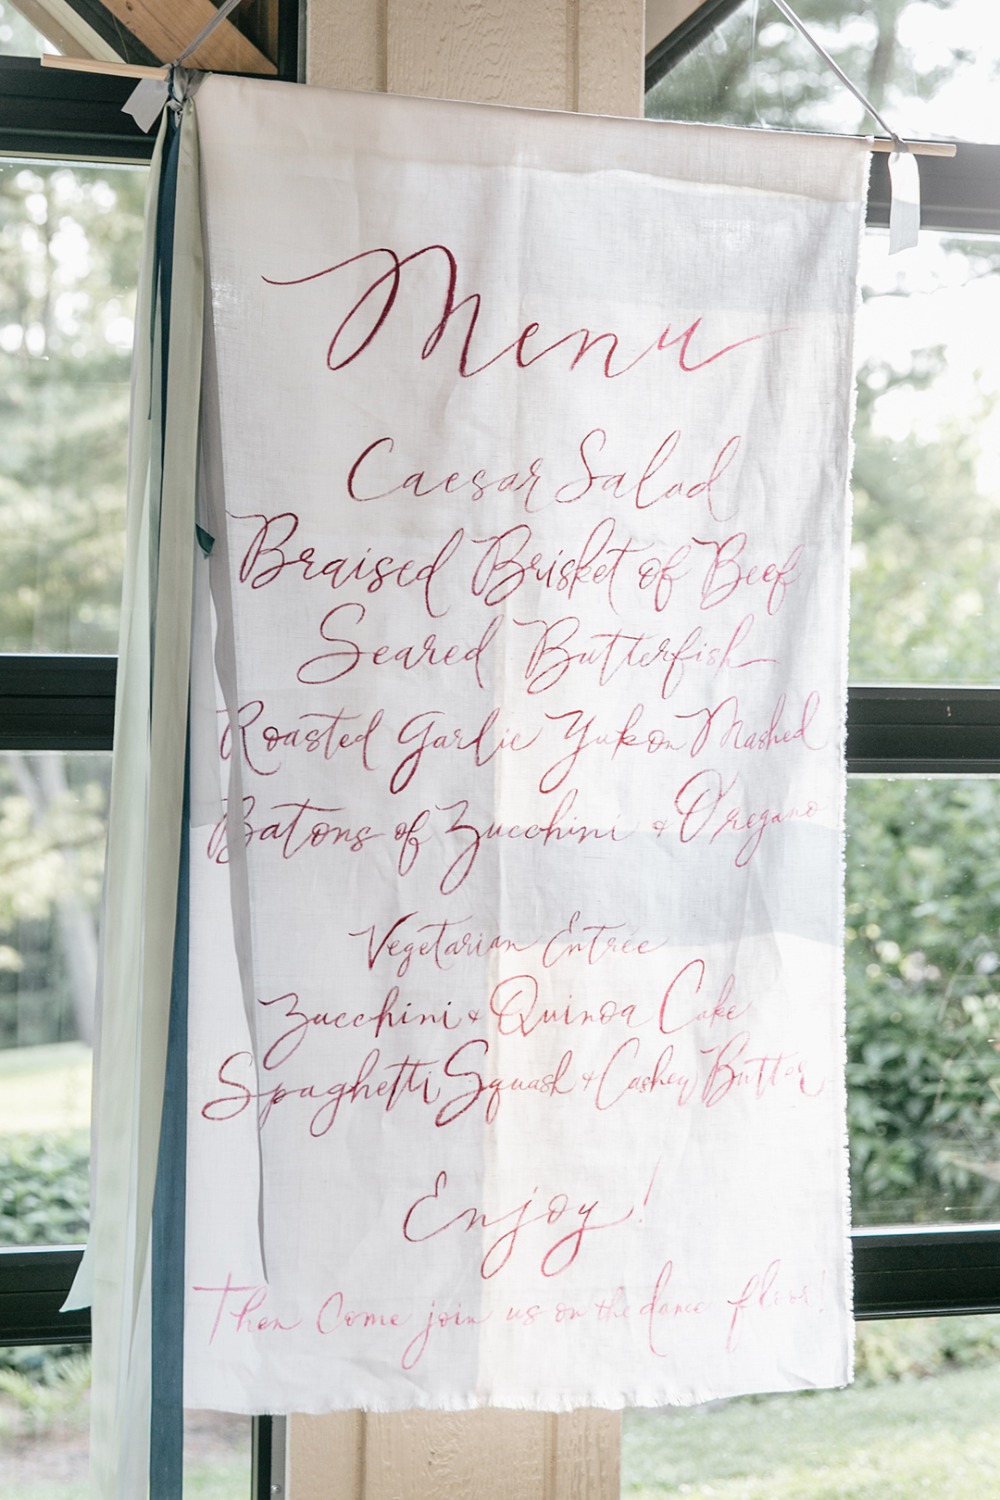 Menu
Caesar Salad
Braised Brisket of Beef
Seared Butterfish
Roasted Garlic Yukon Mashed
Batons of Zucchini & Oregano
Vegetarian Entrée
Zucchini & Quinoa Cake
Spaghetti Squash & Cashew Butter
Enjoy!
Then Come join us on the dance floor!